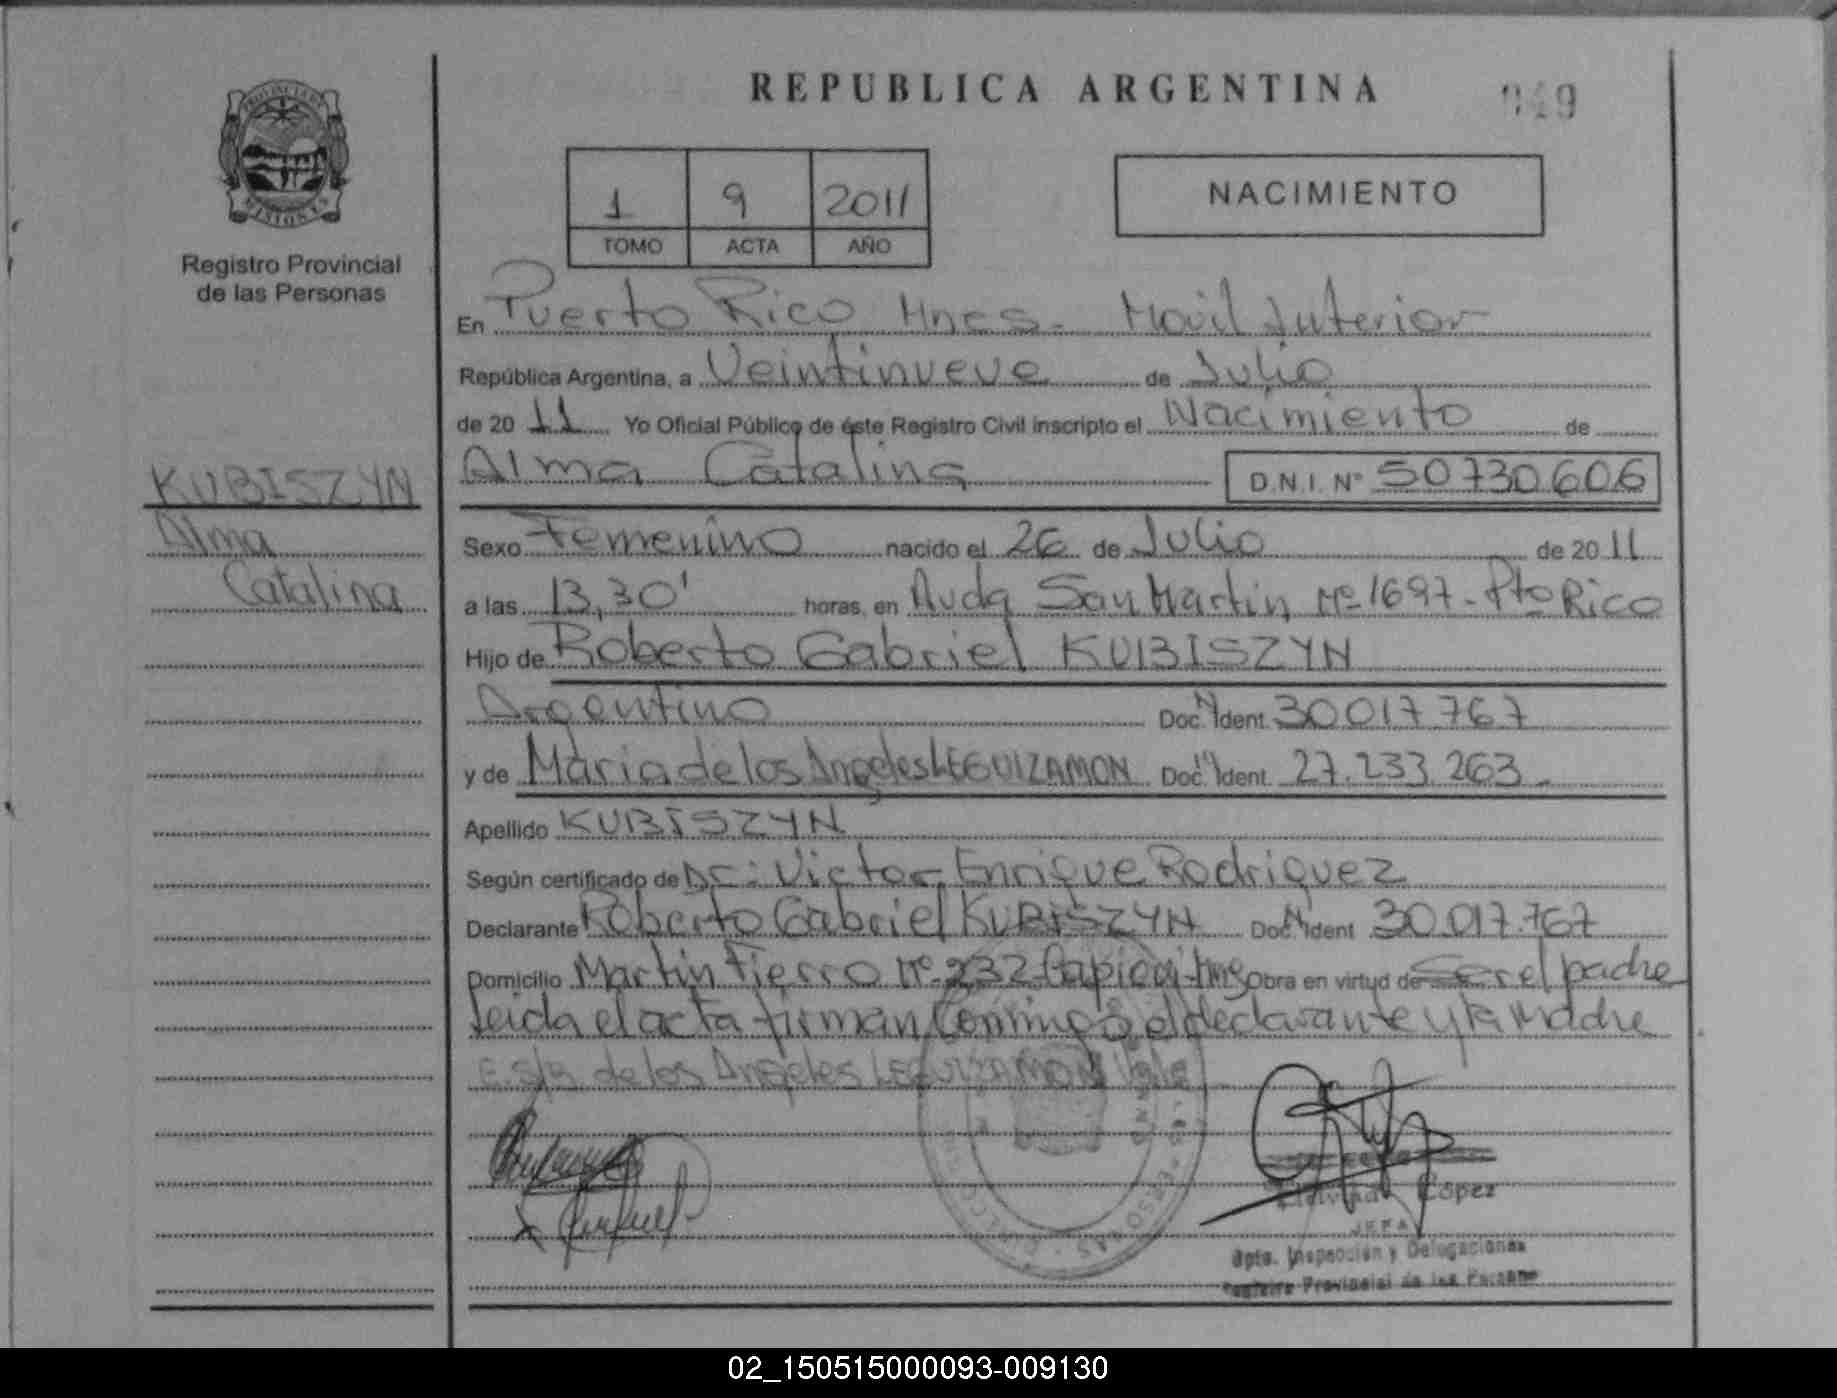 REPUBLICA ARGENTINA
049
PROVINCIA DE
MISIONES
Registro Provincial
de las Personas
1 9 2011
TOMO ACTA AÑO
NACIMIENTO
En Puerto Rico Mnes. Movil Interior
República Argentina, a Veintinueve de Julio
de 2011 Yo Oficial Público de éste Registro Civil inscripto el Nacimiento de
KUBISZYN
Alma
Catalina
Alma Catalina D.N.I. Nº 50730606
Sexo Femenino nacido el 26 de Julio de 2011
a las 13,30' horas, en Avda San Martin, Nº 1697 - Pto Rico
Hijo de Roberto Gabriel KUBISZYN
Argentino Doc. Ident. 30017767
y de Maria de los Angeles LEGUIZAMON Doc. Ident. 27.233.263.-
Apellido KUBISZYN
Según certificado de Dr: Victor Enrique Rodriguez
Declarante Roberto Gabriel KUBISZYN Doc. Ident 30.017.767
Domicilio Martin Fierro Nº 232 Capiovi - Mnes Obra en virtud de Ser el padre
Leida el acta firman Conmigo el declarante y la Madre
de los Angeles LEGUIZAMON Vale
López
JEFA
Dpto. Inspección y Delegaciones
Registro Provincial de las Personas
02_150515000093-009130